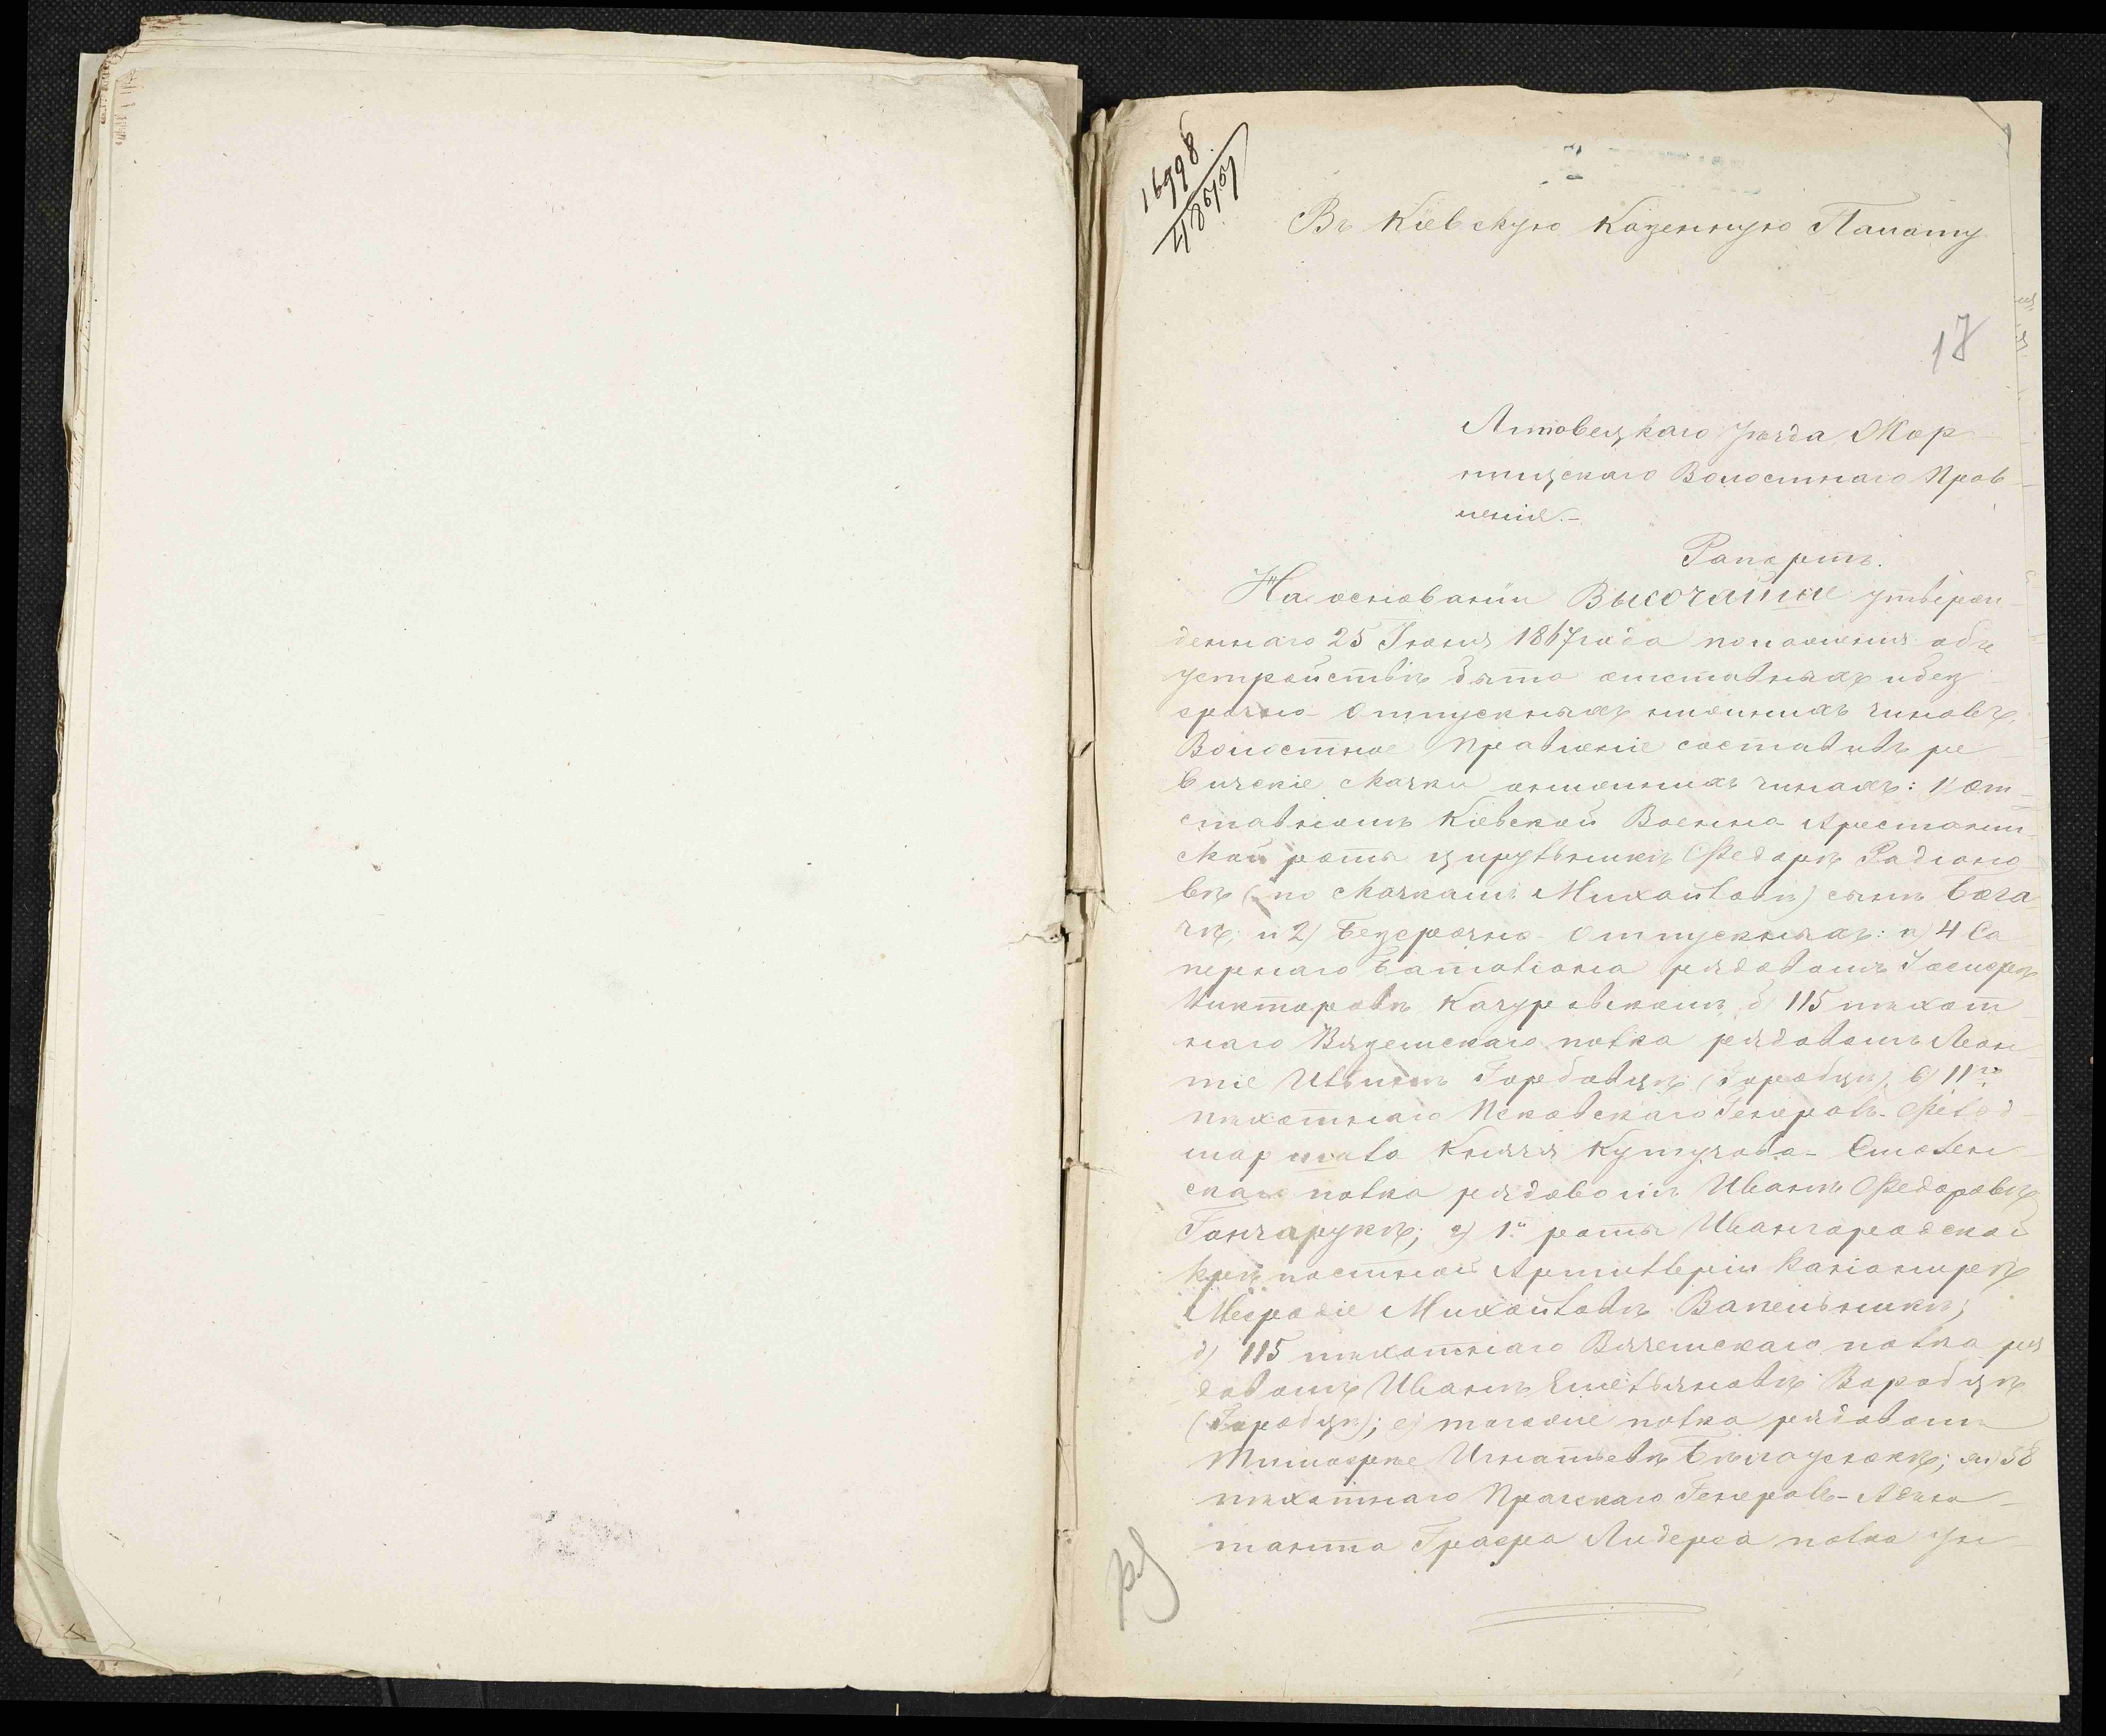 16998
48557
Въ Кіевскую Казенную Палату
17
Липовецкаго уѣзда Жор
нищскаго Волостнаго Прав
ленія.-
Рапортъ.
На основаніи Высочайше утвержденнаго
деннаго 25 Іюня 1867 года положенія объ
устройствѣ быта отставныхъ и без
срочно-отпускныхъ нижнихъ чиновъ,
Волостное Правленіе составивъ ре
визскіе сказки о нижнихъ чинахъ: 1) от
ставномъ Кіевской Военно Арестант
ской роты цирульникѣ Федорѣ Радіоно
вѣ (по сказкамъ Михайловѣ) сынѣ Бога
чѣ; и 2) Безсрочно-отпускныхъ: а) 4 Са
пернаго Баталіона рядовомъ Іосифѣ
Викторовѣ Качуровскомъ, б) 115 пѣхот
наго Вяземскаго полка рядовомъ Леон
тіе Ильинѣ Горобовцѣ (Горобцѣ), в) 11го
пѣхотнаго Псковскаго Генералъ-Фельд
маршала Князя Кутузова-Смолен
скаго полка рядовомъ Иванѣ Федоровѣ
Гончарукѣ; г) 1й роты Ивангородской
крѣпостной Артиллеріи Каноніирѣ
Мефодіе Михайловѣ Вапельникѣ;
д) 115 пѣхотнаго Вяземскаго полка ря
довомъ Иванѣ Емельяновѣ Воробцѣ
(Горобцѣ); е) тогоже полка рядовомъ
Тимофѣе Игнатьевѣ Бѣлоусюкѣ; ж) 58
пѣхотнаго Пражскаго Генералъ-Адъю
танта Графа Лидерса полка ун